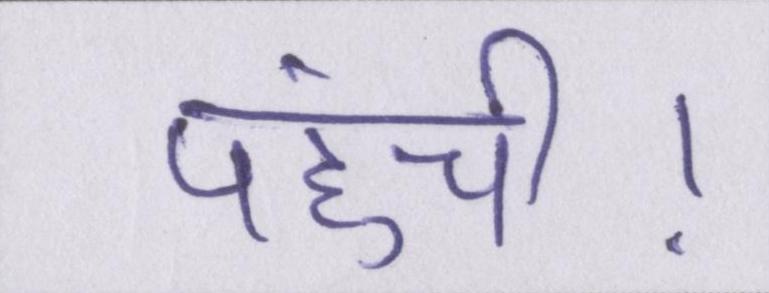 पहुंची!